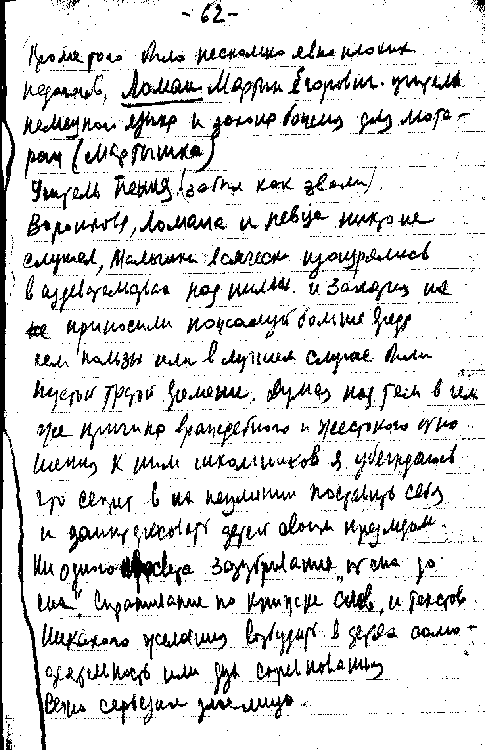 - 62 -
Кроме того было несколько явно плохих
педагогов, Ломан Мартин Егорович - учитель
немецкого языка и закона божия для люте-
ран (Мартышка)
Учитель пения (забыл как звали)
Воронков, Ломана и певца никто не
слушал, мальчишки всячески изощрялись
в издевательствах над ними. и занятия их
не приносили пожалуй больше вреда
чем пользы или в лучшем случае были
пустой тратой времени. Думая над тем в чем
же причина враждебного и жестокого отно
шения к ним школьников я убеждаюсь
что секрет в их неумении поставить себя
и заинтересовать детей своим предметом.
Ни одного зазубривание "от сих до
сих". Спрашивание по книжке слов, и текстов
Никакого желания возбудить в детях самос-
деятельность или дух соревнования
Вечно серьезное лицо.